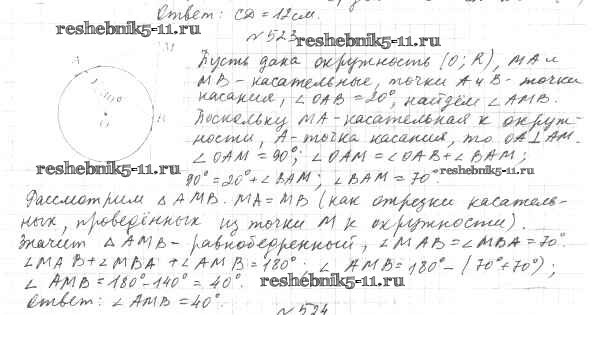 Ответ: CD = 12 см.
reshebnik5-11.ru
N 523
reshebnik5-11.ru
M
A
B
O
Пусть дана окружность (O; R), MA и
MB - касательные, точки A и B - точки
касания, ∠OAB = 20°, найдём ∠AMB.
Поскольку MA - касательная к окруж-
ности, A - точка касания, то OA⊥AM.
reshebnik5-11.ru
∠OAM = 90°; ∠OAM = ∠OAB + ∠BAM;
90° = 20° + ∠BAM; ∠BAM = 70°
reshebnik5-11.ru
Рассмотрим △AMB. MA = MB (как отрезки касатель-
ных, проведённых из точки M к окружности).
Значит △AMB - равнобедренный, ∠MAB = ∠MBA = 70°.
∠MAB + ∠MBA + ∠AMB = 180°; ∠AMB = 180° - (70° + 70°);
∠AMB = 180° - 140° = 40°.
reshebnik5-11.ru
Ответ: ∠AMB = 40°.
N 524